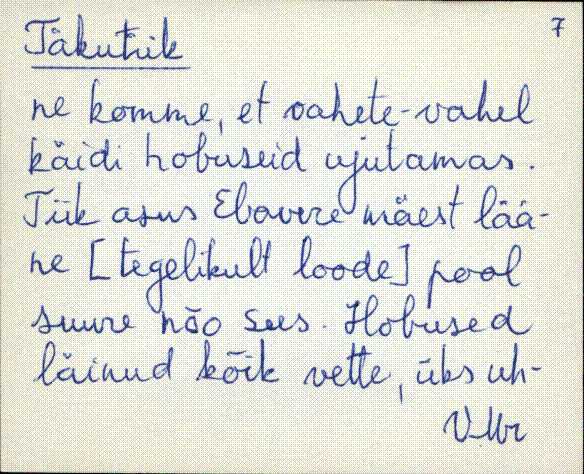 Täkutiik
7
ne komme, et vahete-vahel
käidi hobuseid ujutamas.
Tiik asus Ebavere mäest lää-
ne [tegelikult loode] pool
suure nõo sees. Hobused
läinud kõik vette, üks uh-
V-Mr